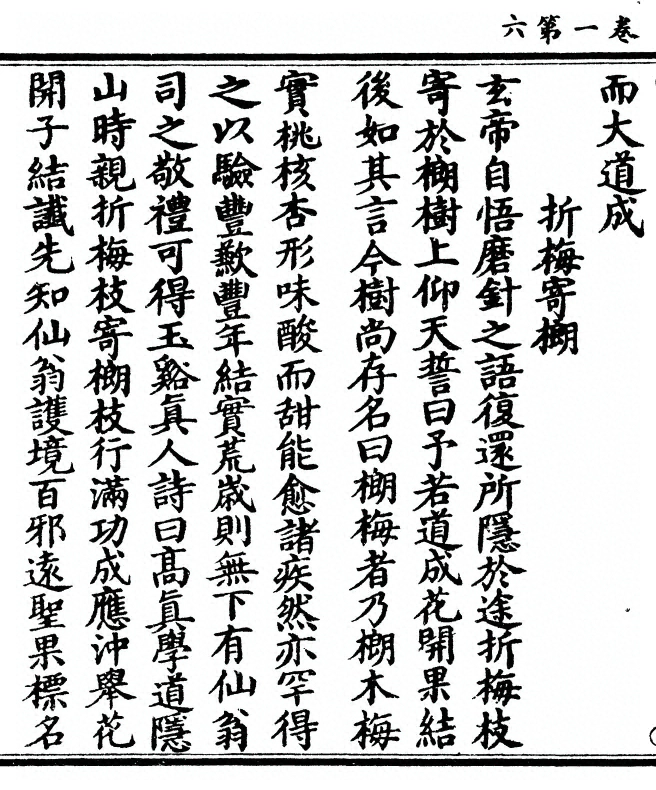 卷一第六
而大道成
折梅寄榔
玄帝自悟磨針之語復還所隱於途折梅枝
寄於榔樹上仰天誓曰予若道成花開果結
後如其言今樹尚存名曰榔梅者乃榔木梅
實桃核杏形味酸而甜能愈諸疾然亦罕得
之以驗豐歉豐年結實荒歲則無下有仙翁
司之敬禮可得玉谿眞人詩曰高眞學道隱
山時親折梅枝寄榔枝行滿功成應沖舉花
開子結讖先知仙翁護境百邪遠聖果標名